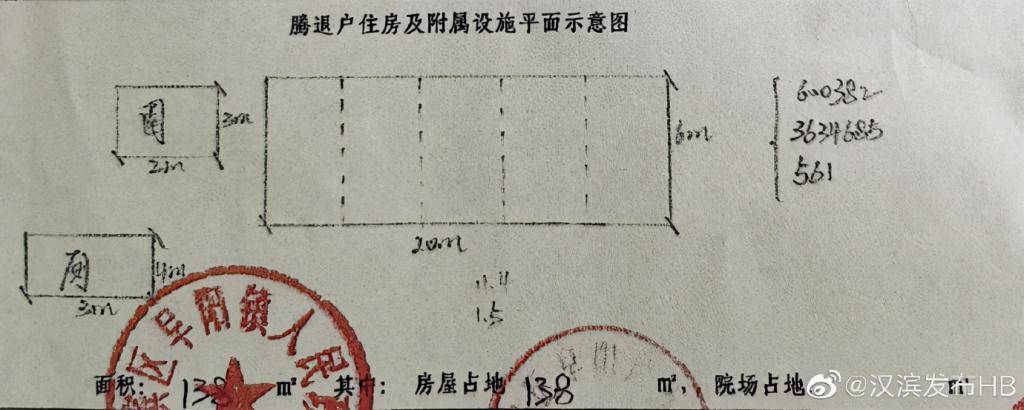 腾退户住房及附属设施平面示意图
3m
2m
6m
20m
600382
3634685
561
厕
4m
3m
11.4
1.5
区早阳镇人民
早阳
面积: 138 m² 其中: 房屋占地 138 m², 院场占地 m²
@汉滨发布HB